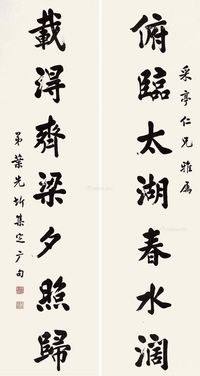 采亭仁兄雅属
俯臨太湖春水濶
載得齊梁夕照歸
弟葉先圻集定广句